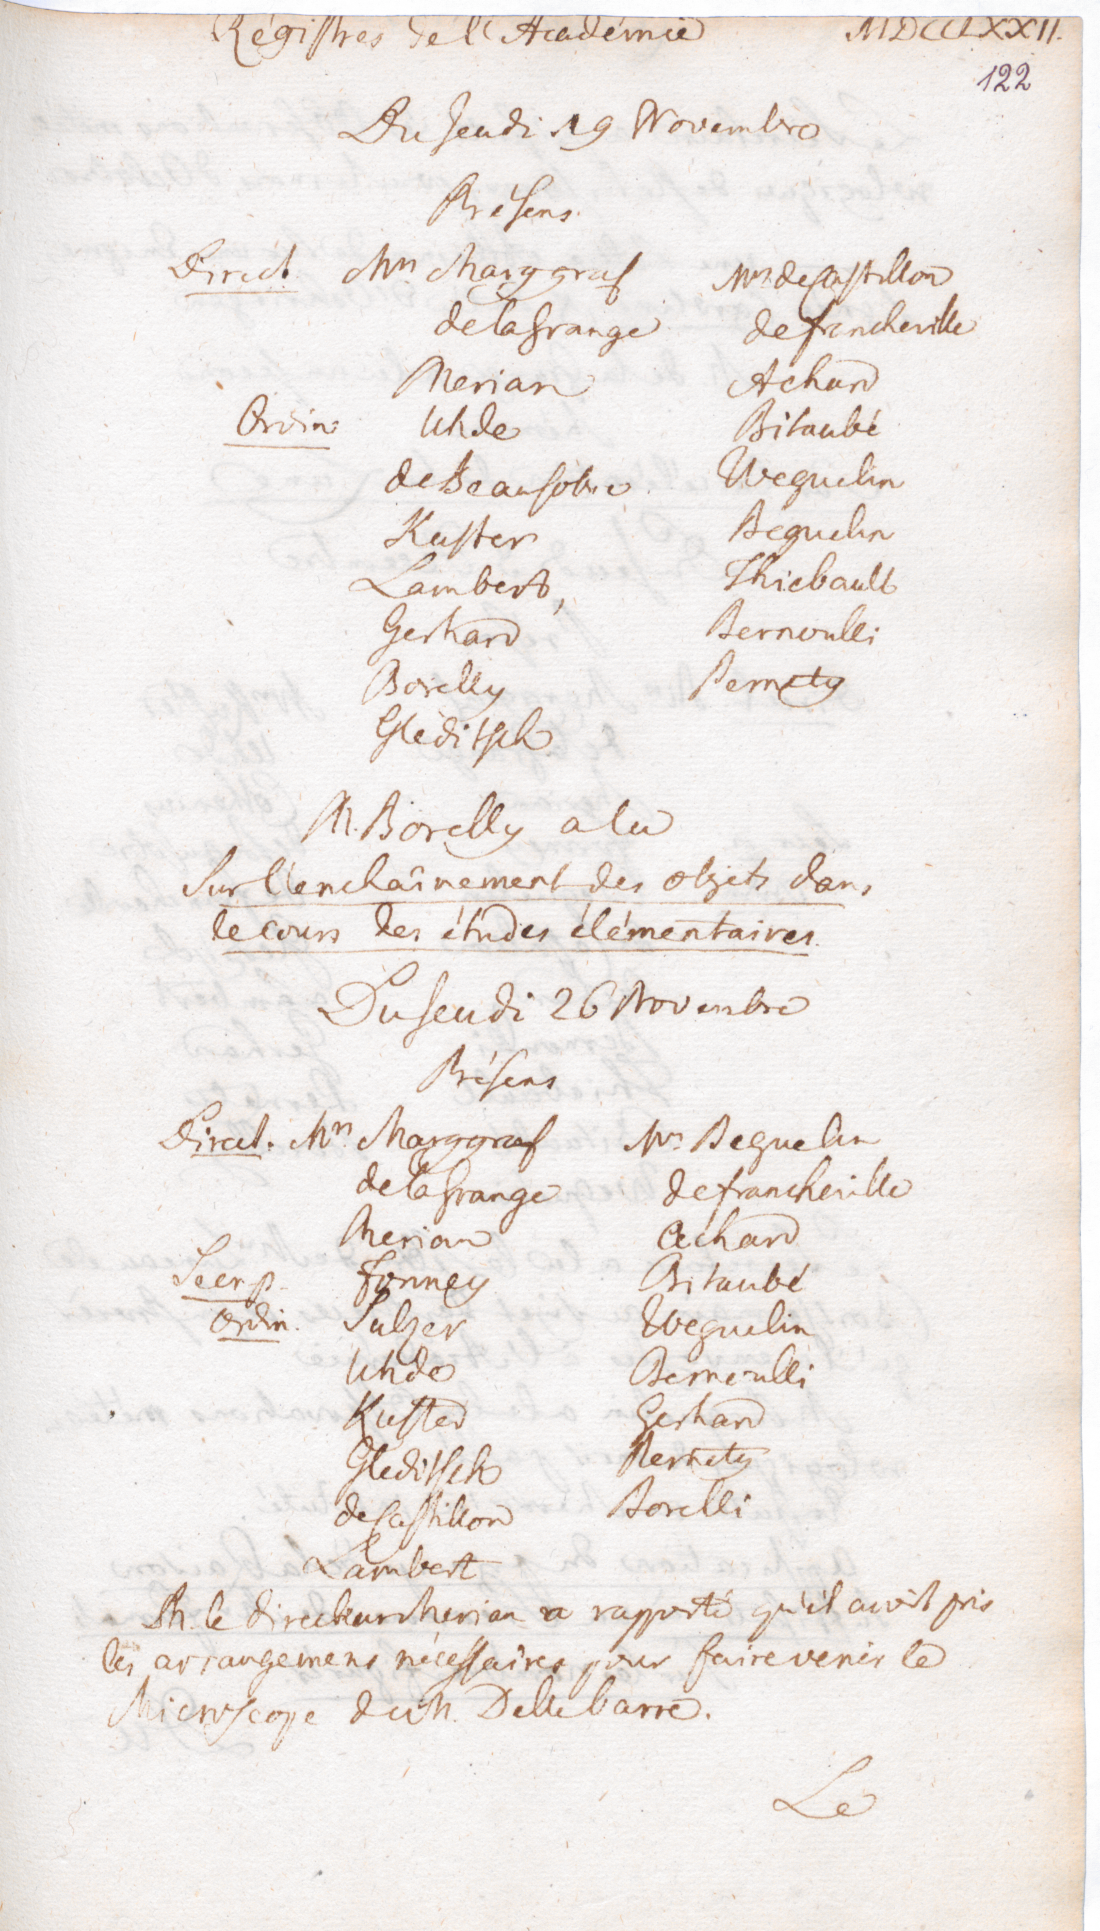 Régistres de l'Académie MDCCLXXII.
122
Du Jeudi 19 Novembre
Présens.
Direct. Mrs Marggraf
de la Grange
Merian
Ordin: Uhde
de Beausobre
Kuster
Lambert,
Gerhard
Borelly
Gleditsch
Mrs de Castillon
de Francheville
Achard
Bitaubé
Weguelin
Beguelin
Thiebault
Bernoulli
Pernety
M. Borelly a lu
Sur l'enchaînement des objets dans
le cours des études élémentaires.
Du Jeudi 26 Novembre
Présens
Direct. Mrs Marggraf
de la Grange
Merian
Secr. p. Formey
Ordin. Sulzer
Uhde
Kuster
Gleditsch
de Castillon
Lambert
Mrs Beguelin
de Francheville
Achard
Bitaubé
Weguelin
Bernoulli
Gerhard
Pernety
Borelli
M. le Directeur Merian a rapporté qu'il avoit pris
les arrangemens nécessaires pour faire venir le
Microscope de M. Dellebarre.
Le